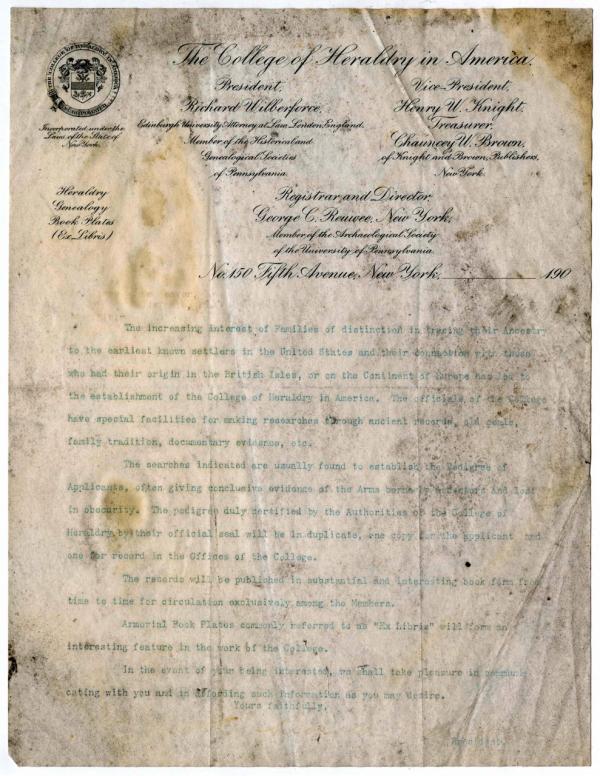 The College of Heraldry in America.
President,
Richard Wilberforce,
Edinburgh University, Attorney at Law London, England.
Member of the Historical and
Genealogical Societies
of Pennsylvania.
Vice-President,
Henry W. Knight,
Treasurer,
Chauncey U. Brown,
of Knight and Brown, Publishers,
New York.
Incorporated under the
Laws of the State of
New York.
Heraldry
Genealogy
Book Plates
(Ex-Libris)
Registrar and Director,
George C. Reuwee, New York,
Member of the Archaeological Society
of the University of Pennsylvania.
No. 150 Fifth Avenue, New York, 190
The increasing interest of Families of distinction in tracing their Ancestry
to the earliest known settlers in the United States and their connection with those
who had their origin in the British Isles, or on the Continent of Europe has led to
the establishment of the College of Heraldry in America. The officials of the College
have special facilities for making researches through ancient records, old seals,
family tradition, documentary evidence, etc.
The searches indicated are usually found to establish the Pedigree of
Applicants, often giving conclusive evidence of the Arms borne by ancestors and lost
in obscurity. The pedigree duly certified by the Authorities of the College of
Heraldry by their official seal will be in duplicate, one copy for the applicant and
one for record in the Offices of the College.
The records will be published in substantial and interesting book form from
time to time for circulation exclusively among the Members.
Armorial Book Plates commonly referred to as "Ex Libris" will form an
interesting feature in the work of the College.
In the event of your being interested, we shall take pleasure in communi-
cating with you and in affording such information as you may desire.
Yours faithfully,
President.